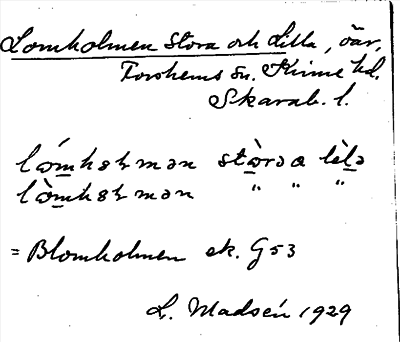 Lomholmen Stora och Lilla, öar,
Forshems sn. Kinne hd.
Skarab. l.
lǿmhɵɫmən stɵ̀rəa lɩ̀lə
lɵ̀mhɵɫmən " " "
= Blomholmen ek. G53
L. Madsén 1929